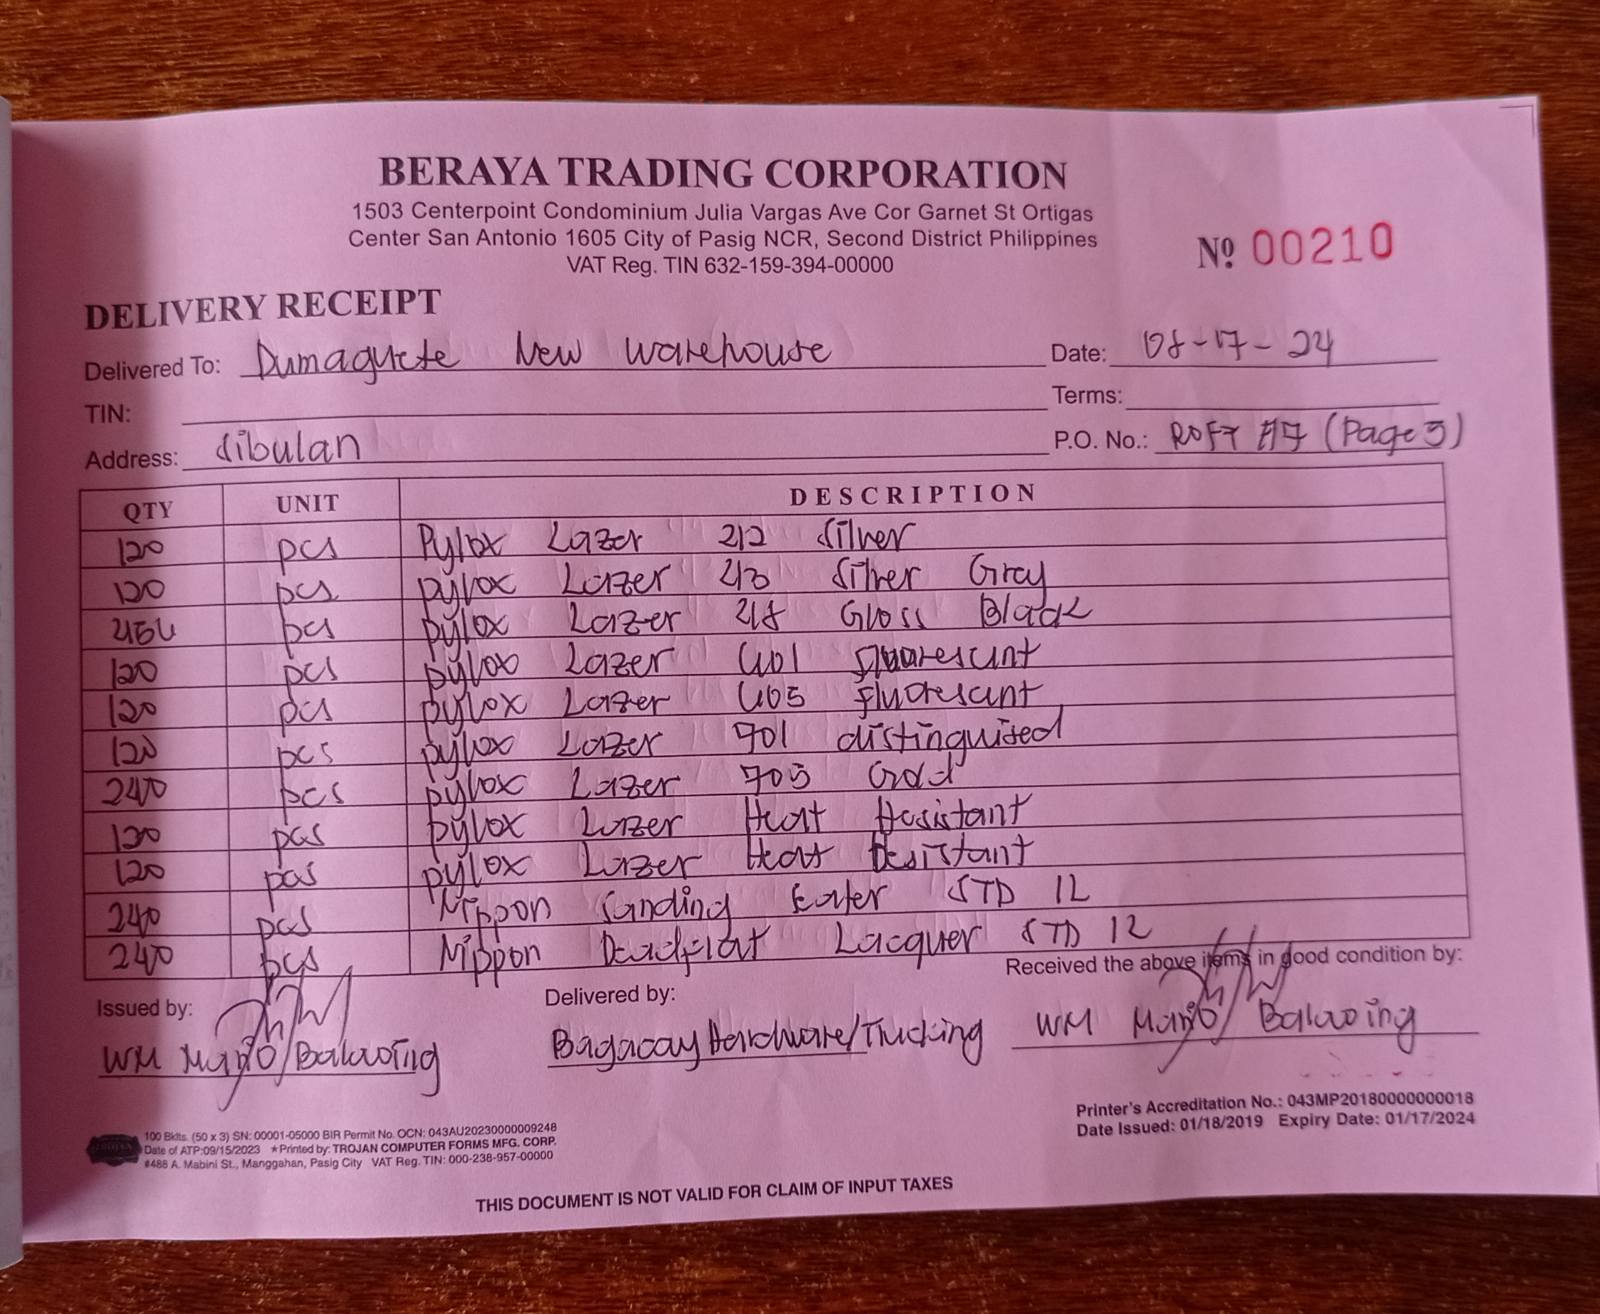 BERAYA TRADING CORPORATION
1503 Centerpoint Condominium Julia Vargas Ave Cor Garnet St Ortigas
Center San Antonio 1605 City of Pasig NCR, Second District Philippines
VAT Reg. TIN 632-159-394-00000
Nº 00210
DELIVERY RECEIPT
Delivered To: Dumaguete New Warehouse Date: 08-17-24
TIN: Terms:
Address: Sibulan P.O. No.: ROFT #7 (Page 3)
QTY UNIT DESCRIPTION
120 pcs Pylox Lazer 212 Silver
120 pcs pylox Lazer 213 Silver Gray
pcs pylox Lazer 218 Gloss Black
120 pcs pylox Lazer 401
120 pcs pylox Lazer 405 Fluorescant
120 pcs pylox Lazer 901 distinguised
240 pcs pylox Lazer 905 Gold
120 pcs pylox Lazer Heat
120 pcs pylox Lazer Heat
240 pcs Nippon Sanding STD 12
240 pcs Nippon Deadflat Lacquer STD 12
Issued by: Delivered by: Received the above items in good condition by:
WM Bagacay Hardware/Trucking WM
100 Bklts. (50 x 3) SN: 00001-05000 BIR Permit No. OCN: 043AU20230000009248
Date of ATP:09/15/2023 ★Printed by: TROJAN COMPUTER FORMS MFG. CORP.
#488 A. Mabini St., Manggahan, Pasig City VAT Reg. TIN: 000-238-957-00000
Printer's Accreditation No.: 043MP20180000000018
Date Issued: 01/18/2019 Expiry Date: 01/17/2024
THIS DOCUMENT IS NOT VALID FOR CLAIM OF INPUT TAXES